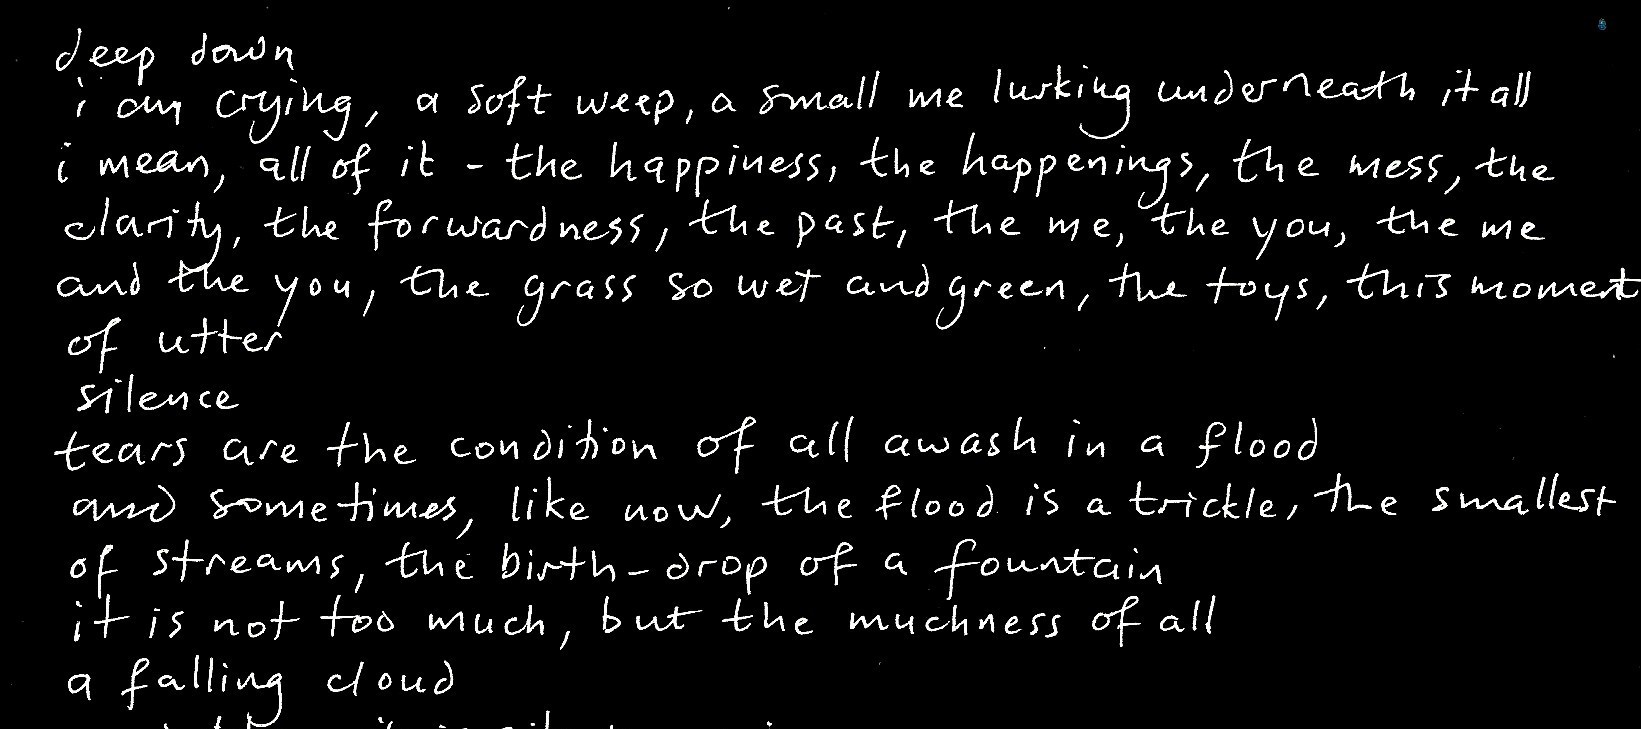 deep down
i am crying, a soft weep, a small me lurking underneath it all
i mean, all of it - the happiness, the happenings, the mess, the
clarity, the forwardness, the past, the me, the you, the me
and the you, the grass so wet and green, the toys, this moment
of utter
silence
tears are the condition of all awash in a flood
and sometimes, like now, the flood is a trickle, the smallest
of streams, the birth-drop of a fountain
it is not too much, but the muchness of all
a falling cloud